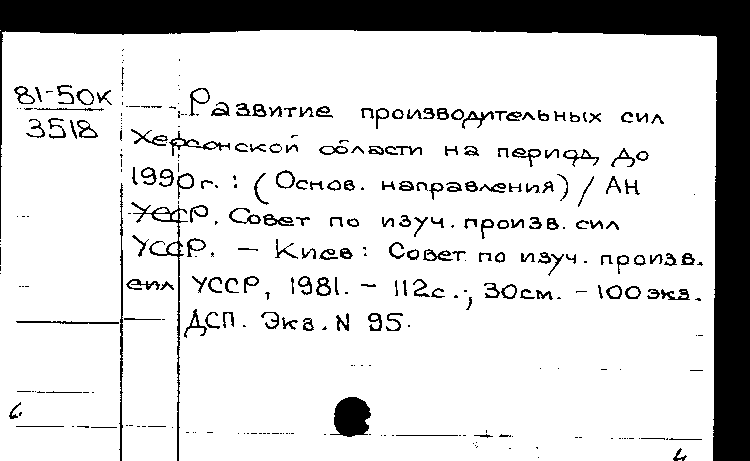 81-50К
3518
Развитие производительных сил
Херсонской области на период до
1990г. : (Основ. направления) / АН
УССР. Совет по изуч. произв. сил
УССР. – Киев : Совет по изуч. произв.
сил УССР, 1981. – 112с. ; 30см. – 100 экз.
ДСП. Экз. N 95.
6.
4